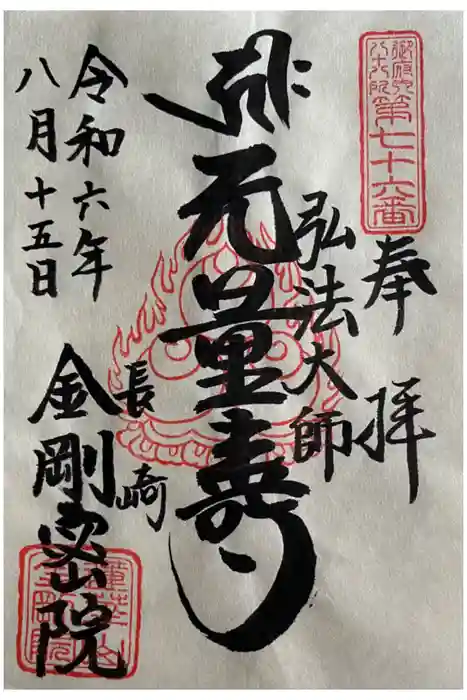 御府内
八十八ヶ所
第七十六番
奉拝
弘法大師
无量寿
長崎
金剛密院
令和六年
八月十五日